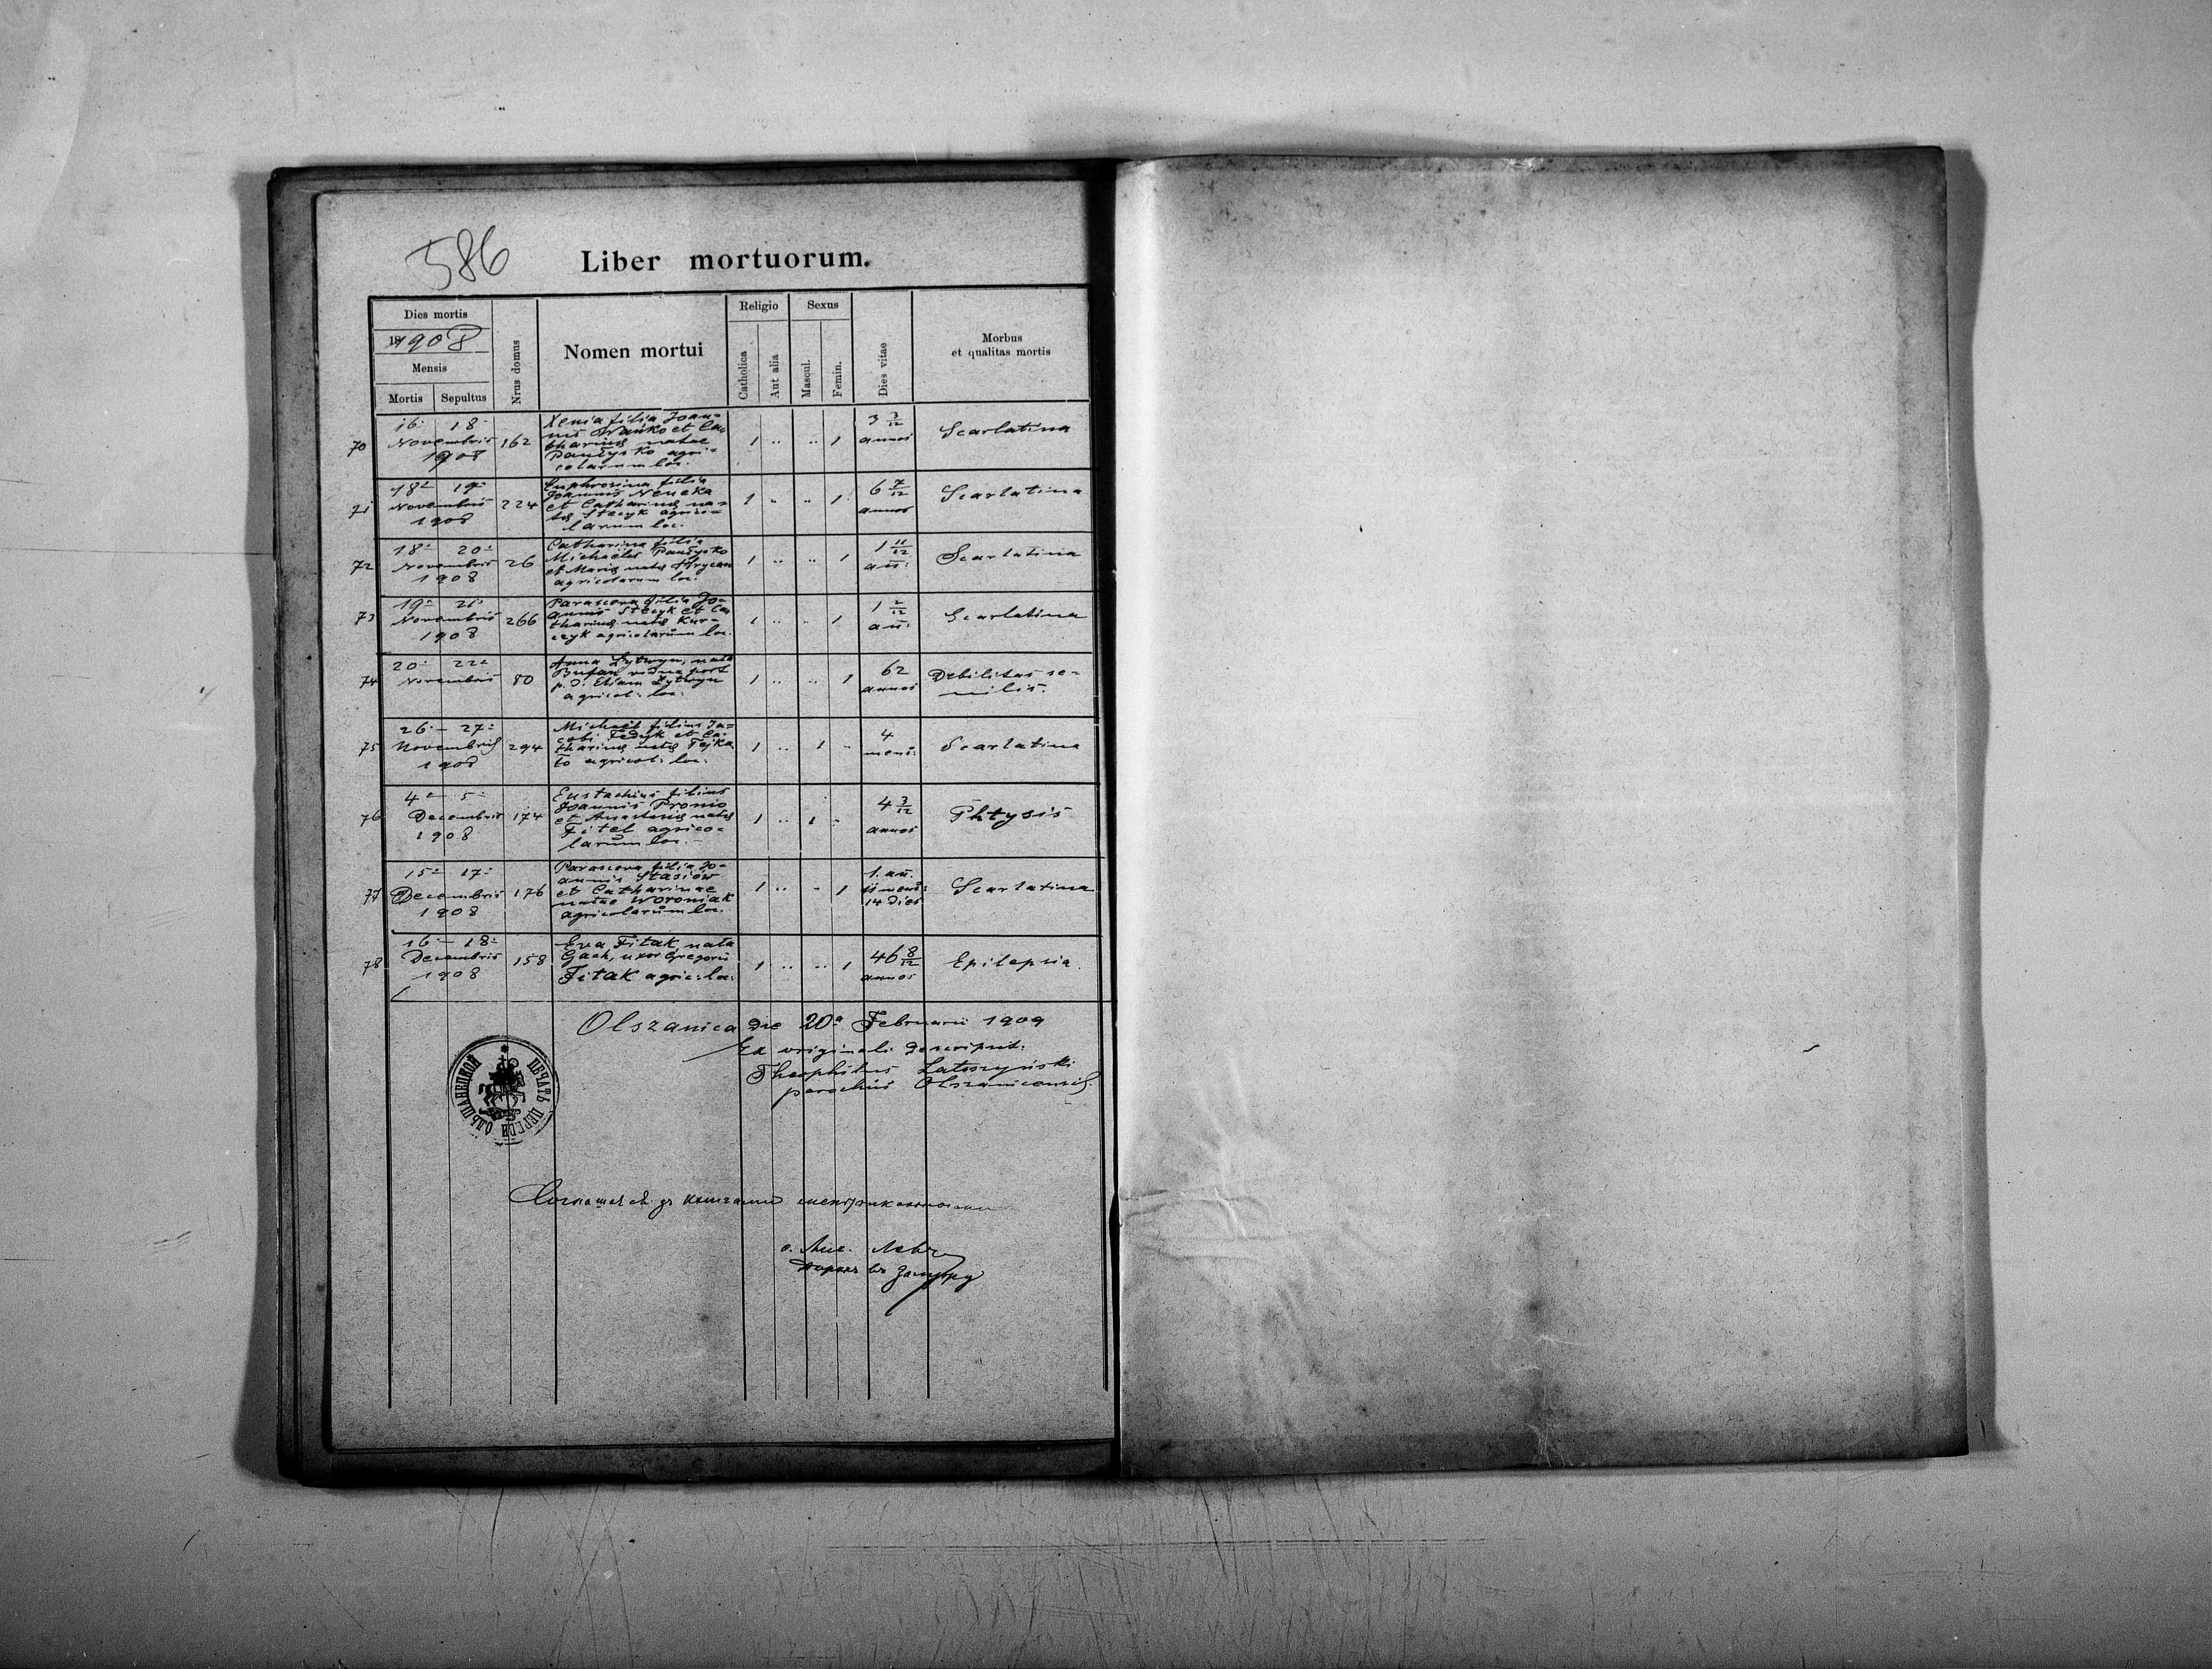 586
Liber mortuorum.
Dies mortis
1908
Mensis
Mortis Sepultus
Nrus domus
Nomen mortui
Religio
Catholica
Aut alia
Sexus
Mascul.
Femin.
Dies vitae
Morbus
et qualitas mortis
70
16. 18.
Novembris
1908
162
Xenia filia Joan=
nis Iwańko et Ca=
tharinae natae
Pańczysko agri=
colarum loc.
1 .. .. 1
3 3/12
annos
Scarlatina
71
18. 19.
Novembris
1908
224
Euphrosina filia
Joannis Neneka
et Catharinae na=
tae Stecyk agrico=
larum loc.
1 .. .. 1
6 7/12
annos
Scarlatina
72
18. 20.
Novembris
1908
26
Catharina filia
Michaëlis
et Mariae natae Hrycan
agricolarum loc.
1 .. .. 1
1 11/12
an̄:
Scarlatina
73
19. 21.
Novembris
1908
266
Parascева filia Jo=
annis Stecyk et Ca=
tharinae natae Kur=
czyk agricolarum loc.
1 .. .. 1
1 2/12
an̄:
Scarlatina
74
20. 22.
Novembris
80
Anna Łytwyn, nata
Bufan vidua post
p. d. Eliam Łytwyn
agricol: loc:
1 .. .. 1
62
annos
Debilitas se=
nilis.
75
26. - 27.
Novembris
1908
294
Michaël filius Ja=
cobi Fedyk et Ca=
tharinae natae Tejka
to agricol: loc:
1 .. 1 ..
4
mens:
Scarlatina
76
4. - 5.
Decembris
1908
174
Eustachius filius
Joannis Pronio
et Anastasiae natae
Fitel agrico=
larum loc.
1 .. 1 ..
4 3/12
annos
Phtysis
77
15. 17.
Decembris
1908
176
Parasceva filia Jo=
annis Stasiów
et Catharinae
natae Woroniak
agricolarum loc.
1 .. .. 1
1. an̄.
11 mens:
14 dies
Scarlatina
78
16. - 18.
Decembris
1908
158
Eva Fitak, nata
Gach, uxor Gregorii
Fitak agric: loc:
1 .. .. 1
46 8/12
annos
Epilepsia.
Olszanica die 20a Februarii 1909
Ex originali descripsit:
Theophilus Łatoszyński
parochus Olszanicensis.
ПЕЧАТЬ ЦЕРКВИ ОЛЬШАНЕЦКОЙ